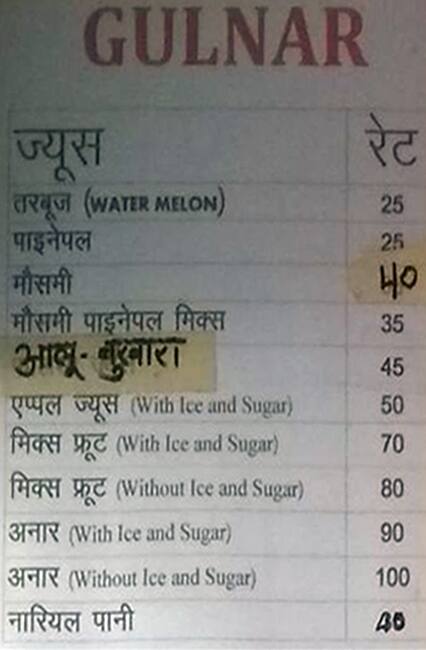 GULNAR
ज्यूस रेट
तरबूज (WATER MELON) 25
पाइनेपल 25
मौसमी 40
मौसमी पाइनेपल मिक्स 35
आलू-बुखारा 45
एप्पल ज्यूस (With Ice and Sugar) 50
मिक्स फ्रूट (With Ice and Sugar) 70
मिक्स फ्रूट (Without Ice and Sugar) 80
अनार (With Ice and Sugar) 90
अनार (Without Ice and Sugar) 100
नारियल पानी